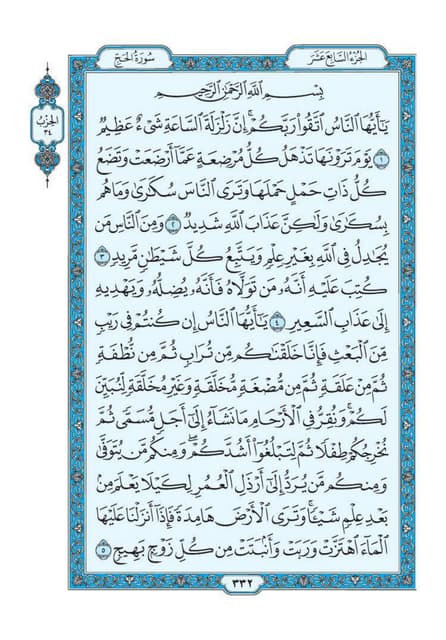 الجزء السابع عشر
سورة الحج
الحزب
٣٤
بِسْمِ اللَّهِ الرَّحْمَٰنِ الرَّحِيمِ
يَٰٓأَيُّهَا النَّاسُ اتَّقُوا۟ رَبَّكُمْ ۚ إِنَّ زَلْزَلَةَ السَّاعَةِ شَىْءٌ عَظِيمٌ
١ يَوْمَ تَرَوْنَهَا تَذْهَلُ كُلُّ مُرْضِعَةٍ عَمَّآ أَرْضَعَتْ وَتَضَعُ
كُلُّ ذَاتِ حَمْلٍ حَمْلَهَا وَتَرَى النَّاسَ سُكَٰرَىٰ وَمَا هُم
بِسُكَٰرَىٰ وَلَٰكِنَّ عَذَابَ اللَّهِ شَدِيدٌ ٢ وَمِنَ النَّاسِ مَن
يُجَٰدِلُ فِى اللَّهِ بِغَيْرِ عِلْمٍ وَيَتَّبِعُ كُلَّ شَيْطَٰنٍ مَّرِيدٍ ٣
كُتِبَ عَلَيْهِ أَنَّهُۥ مَن تَوَلَّاهُ فَأَنَّهُۥ يُضِلُّهُۥ وَيَهْدِيهِ
إِلَىٰ عَذَابِ السَّعِيرِ ٤ يَٰٓأَيُّهَا النَّاسُ إِن كُنتُمْ فِى رَيْبٍ
مِّنَ الْبَعْثِ فَإِنَّا خَلَقْنَٰكُم مِّن تُرَابٍ ثُمَّ مِن نُّطْفَةٍ
ثُمَّ مِنْ عَلَقَةٍ ثُمَّ مِن مُّضْغَةٍ مُّخَلَّقَةٍ وَغَيْرِ مُخَلَّقَةٍ لِّنُبَيِّنَ
لَكُمْ ۚ وَنُقِرُّ فِى الْأَرْحَامِ مَا نَشَآءُ إِلَىٰٓ أَجَلٍ مُّسَمًّى ثُمَّ
نُخْرِجُكُمْ طِفْلًا ثُمَّ لِتَبْلُغُوٓا۟ أَشُدَّكُمْ ۖ وَمِنكُم مَّن يُتَوَفَّىٰ
وَمِنكُم مَّن يُرَدُّ إِلَىٰٓ أَرْذَلِ الْعُمُرِ لِكَيْلَا يَعْلَمَ مِنۢ
بَعْدِ عِلْمٍ شَيْـًٔا ۚ وَتَرَى الْأَرْضَ هَامِدَةً فَإِذَآ أَنزَلْنَا عَلَيْهَا
الْمَآءَ اهْتَزَّتْ وَرَبَتْ وَأَنۢبَتَتْ مِن كُلِّ زَوْجٍۭ بَهِيجٍ ٥
٣٣٢